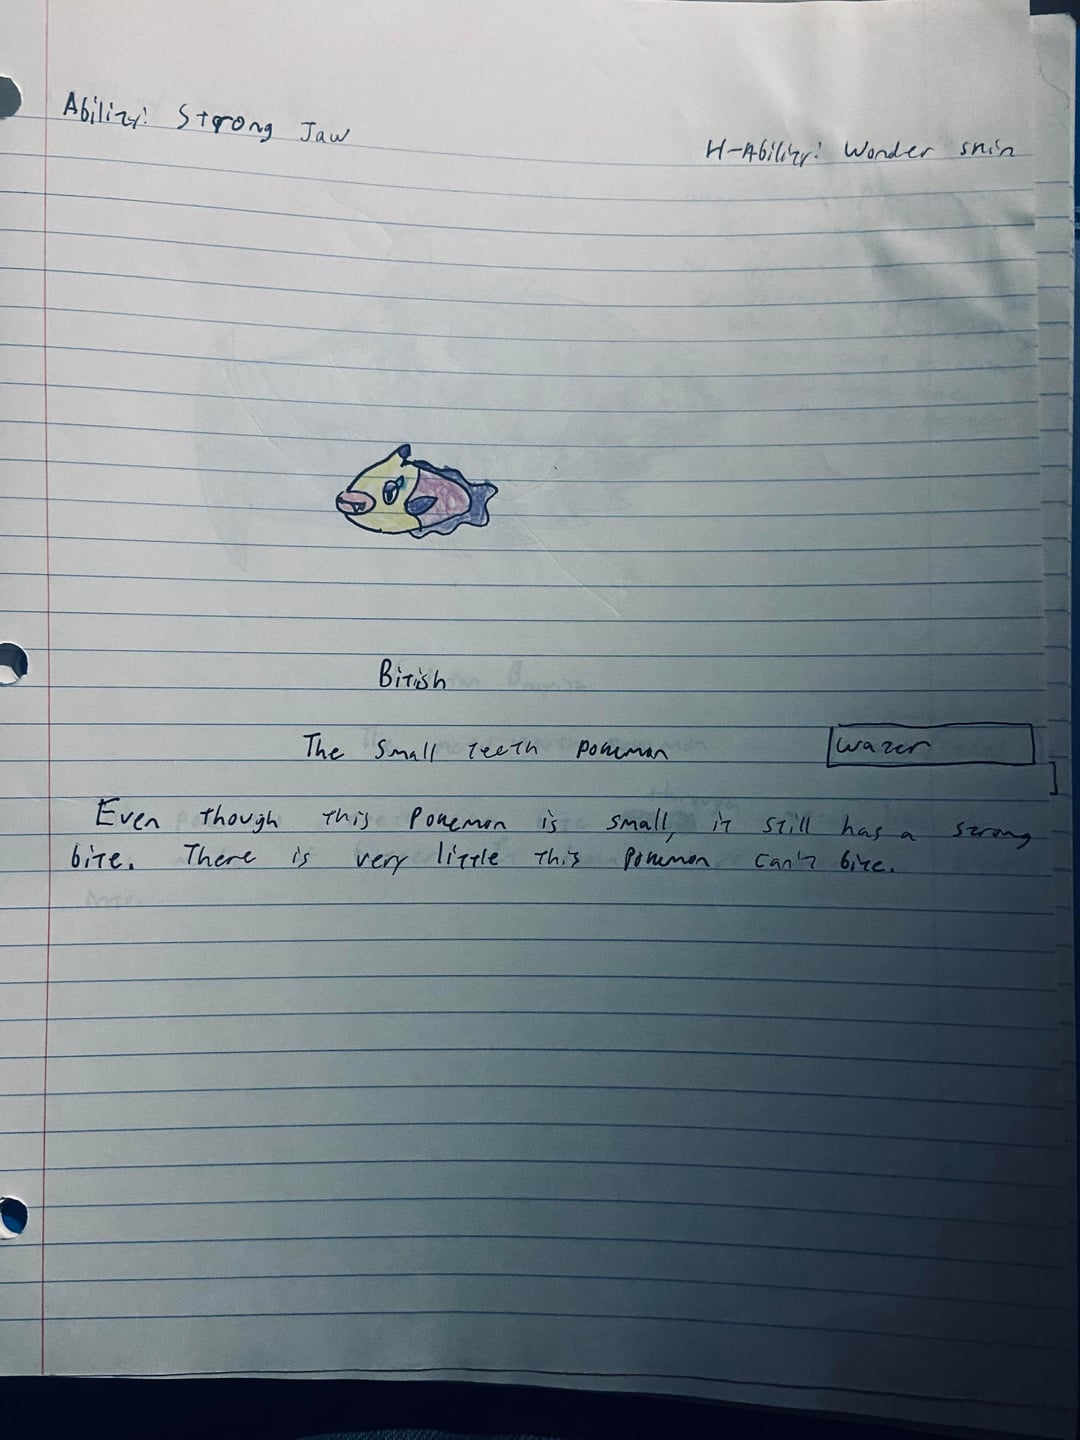 Ability: Strong Jaw
H-Ability: Wonder skin
Bitish
The Small teeth pokemon
water
Even though this Pokemon is small, it still has a strong
bite. There is very little this pokemon can't bite.